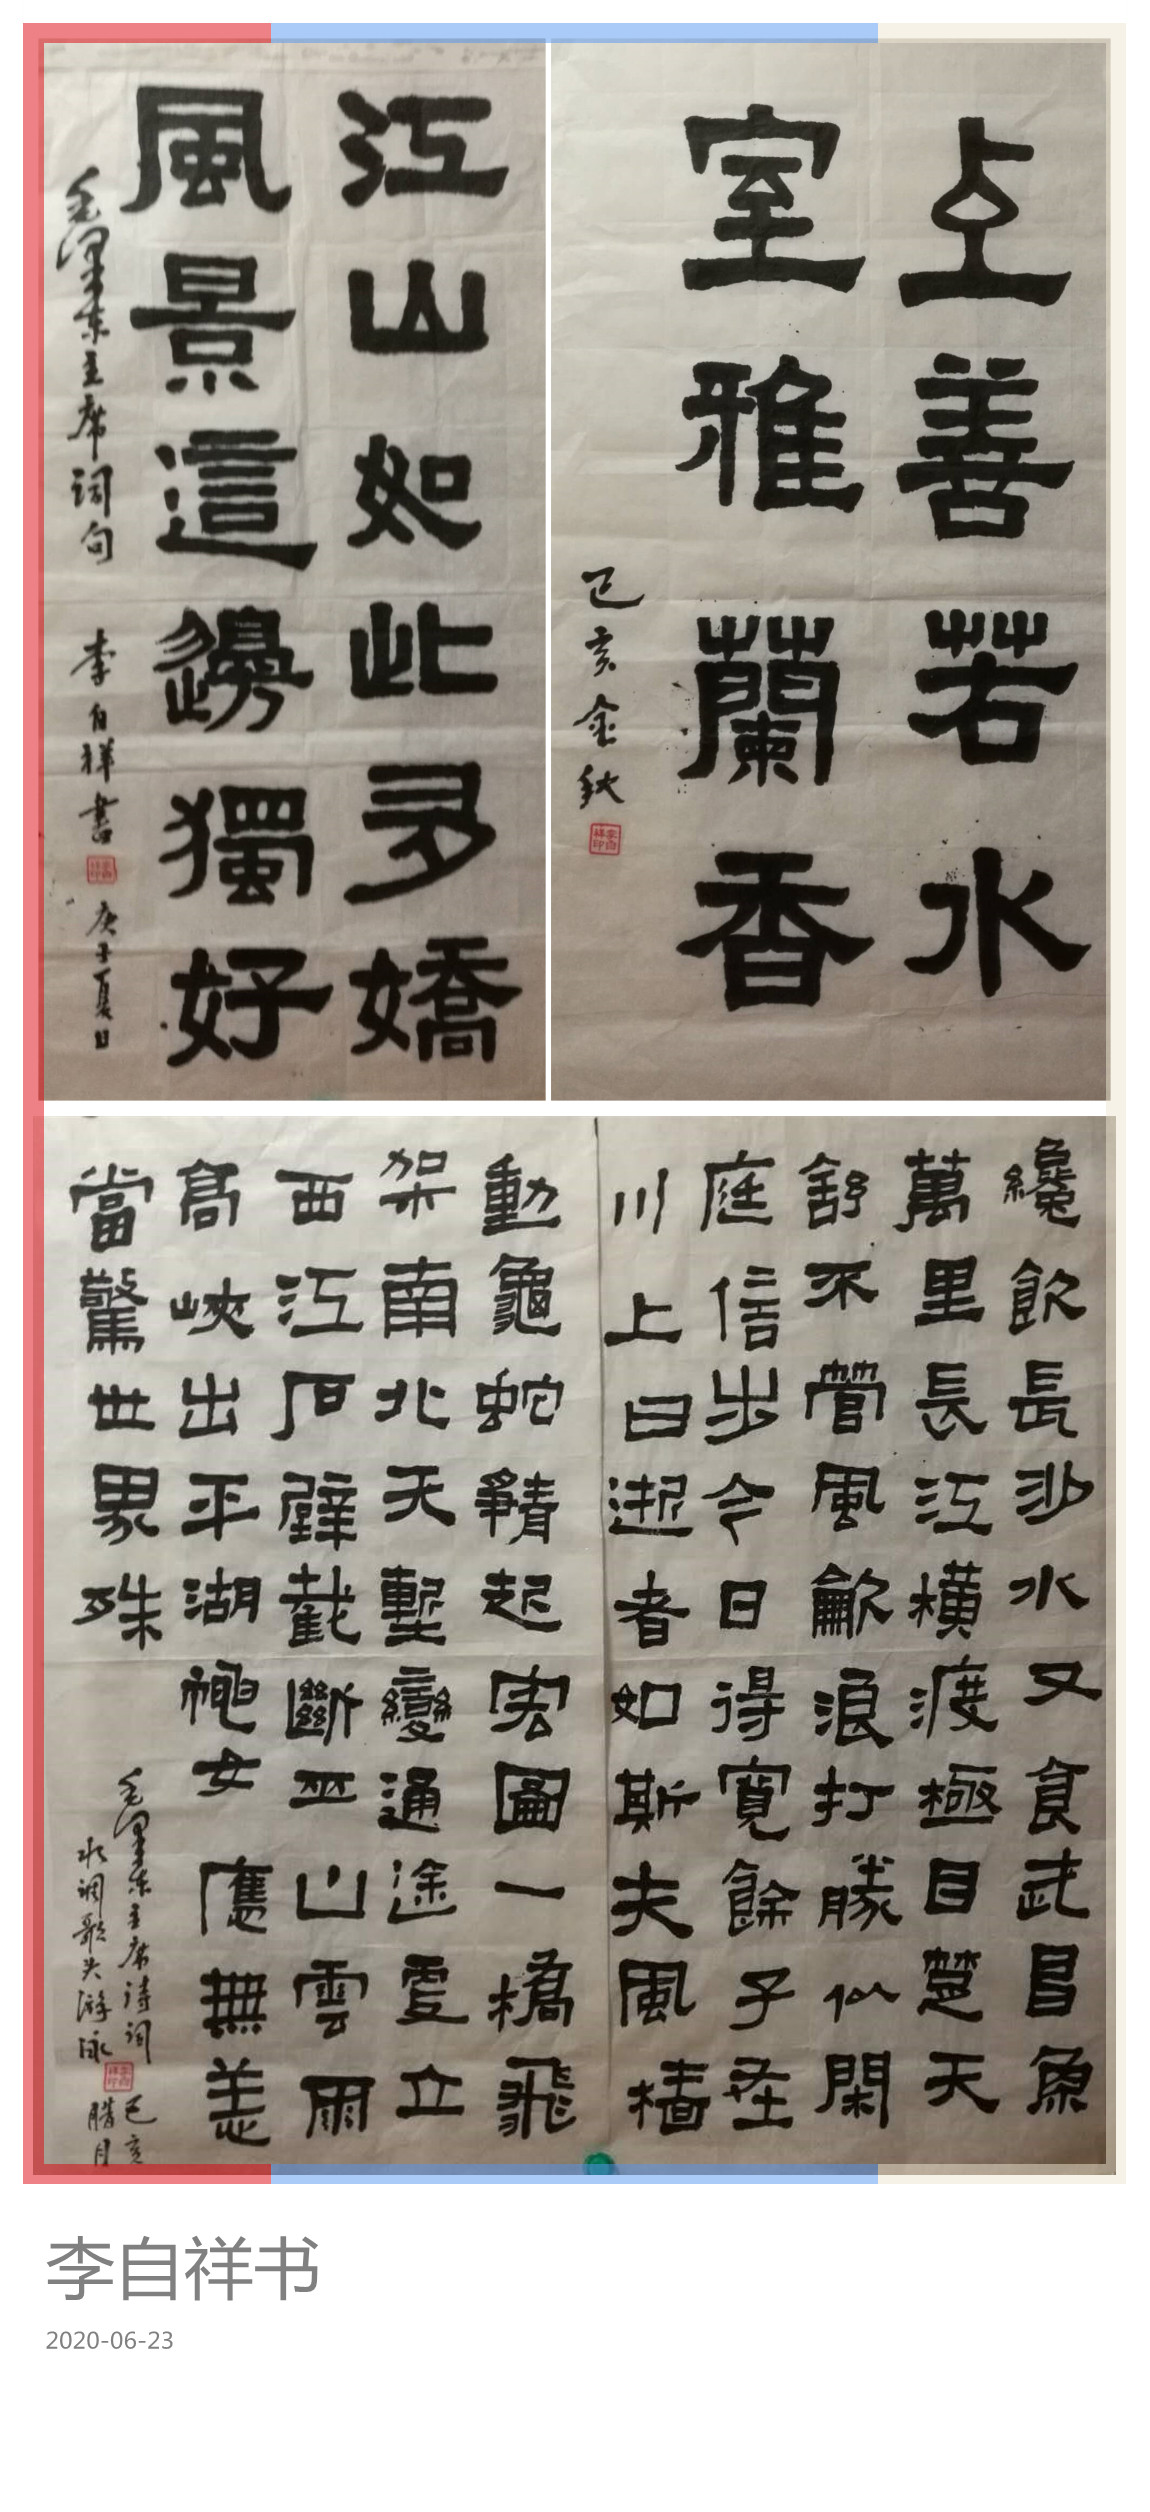 江山如此多嬌
風景這邊獨好
毛澤東主席词句 李自祥書 庚子夏日
上善若水
室雅蘭香
己亥金秋
纔飲長沙水又食武昌魚
萬里長江橫渡極目楚天
舒不管風龡浪打勝似閑
庭信步今日得寬餘子在
川上曰逝者如斯夫風檣
動龜蛇靜起宏圖一橋飛
架南北天塹變通途更立
西江石壁截斷巫山雲雨
高峽出平湖神女應無恙
當驚世界殊
毛澤东主席诗词 己亥
水调歌头游泳 腊月
李自祥书
2020-06-23